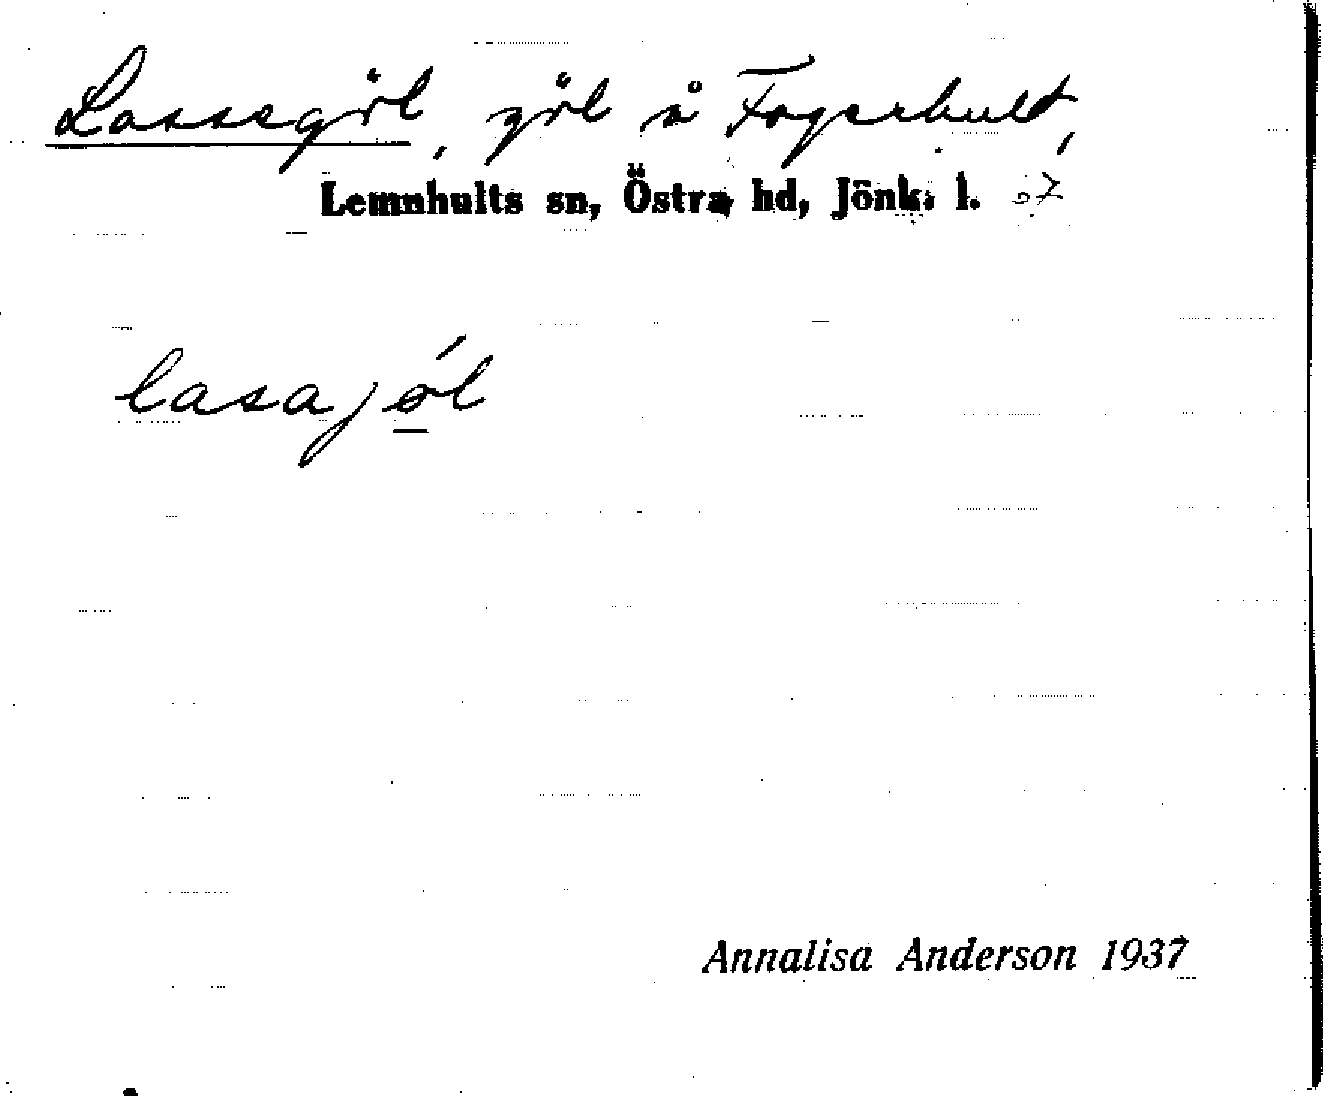 Lassegöl, göl å Fagerhult,
Lemnhults sn, Östra hd, Jönk. l. 07
lasajǿl
Annalisa Anderson 1937